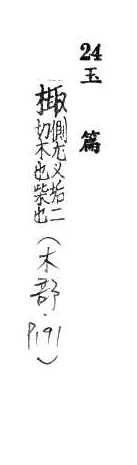 24 玉篇
棷側尤叉垢二
切木也柴也(木部.P191)